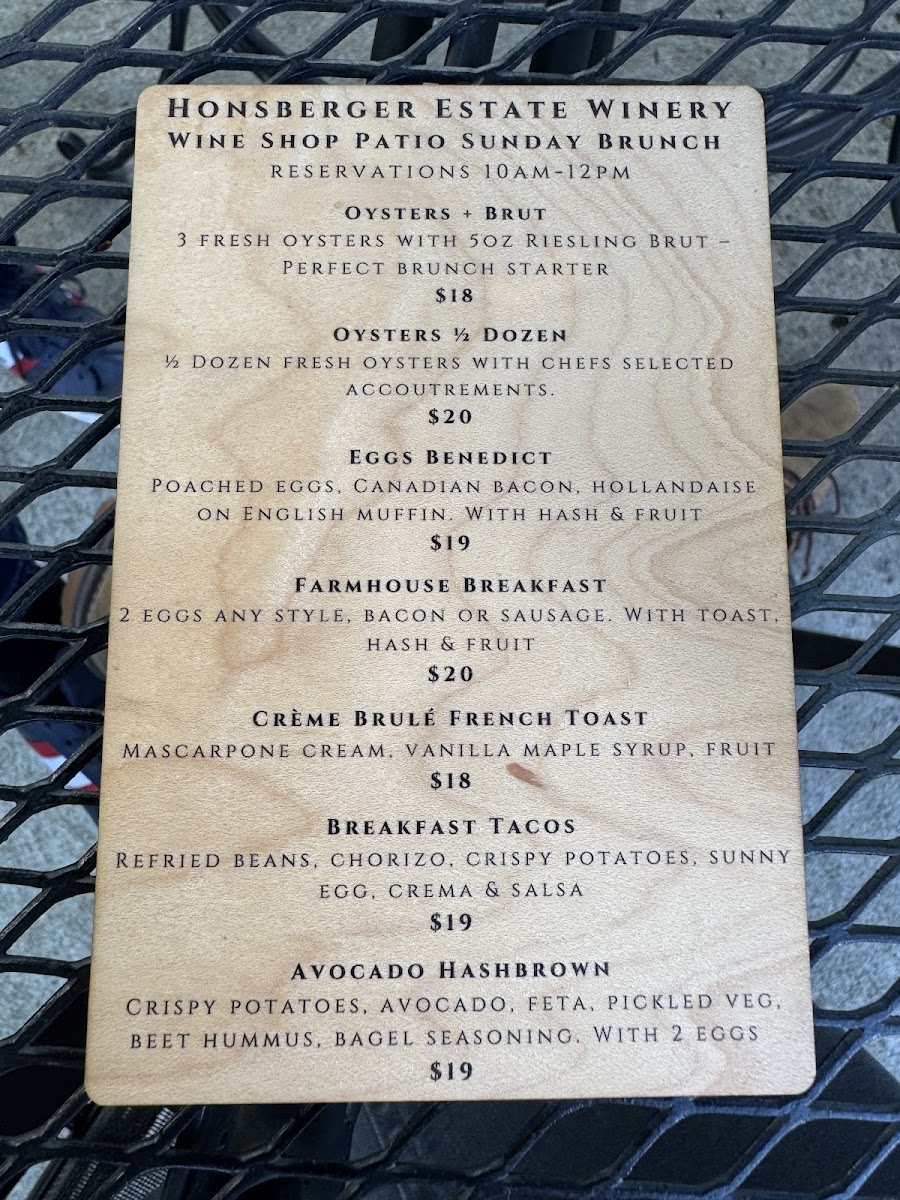 Honsberger Estate Winery
Wine Shop Patio Sunday Brunch
reservations 10am-12pm
Oysters + Brut
3 fresh oysters with 5oz Riesling Brut –
Perfect brunch starter
$18
Oysters ½ Dozen
½ Dozen fresh oysters with chefs selected
accoutrements.
$20
Eggs Benedict
Poached eggs, Canadian bacon, hollandaise
on English muffin. With hash & fruit
$19
Farmhouse Breakfast
2 eggs any style, bacon or sausage. With toast,
hash & fruit
$20
Crème Brulé French Toast
Mascarpone cream, vanilla maple syrup, fruit
$18
Breakfast Tacos
Refried beans, chorizo, crispy potatoes, sunny
egg, crema & salsa
$19
Avocado Hashbrown
Crispy potatoes, avocado, feta, pickled veg,
beet hummus, bagel seasoning. With 2 eggs
$19